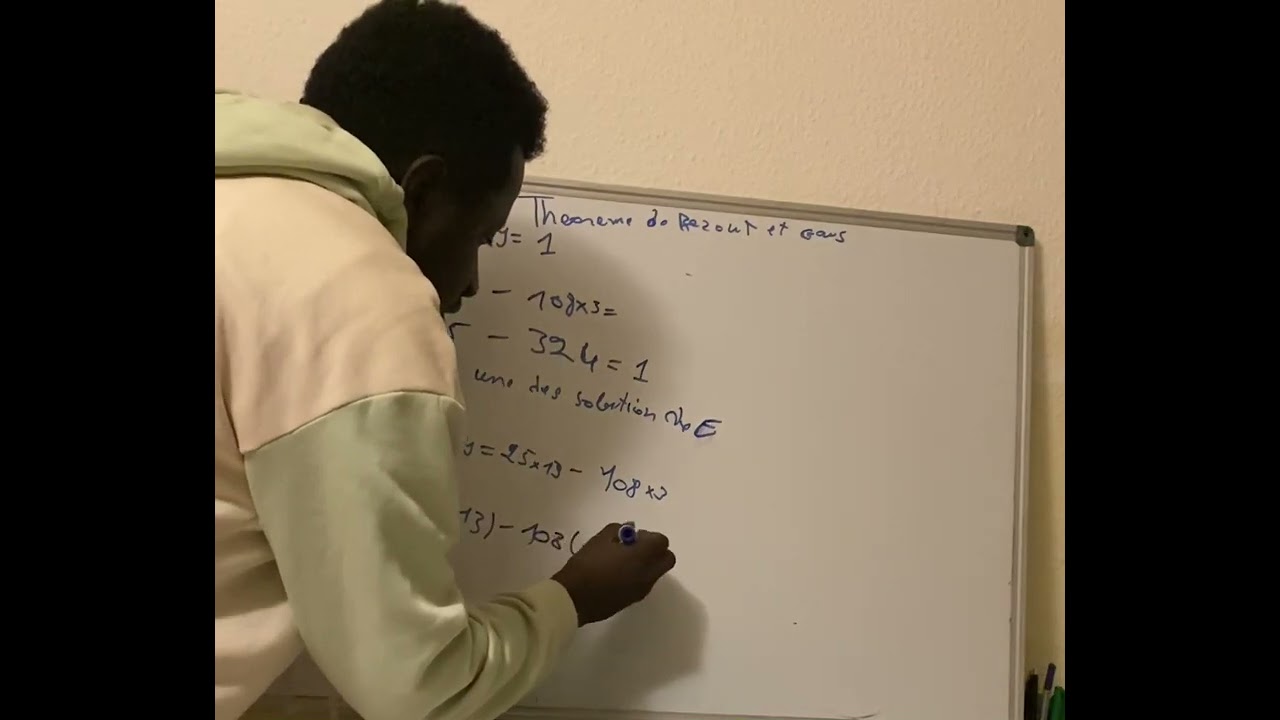 Theoreme de Bezout et Gaus
y = 1
- 108x3=
5 - 324 = 1
une des solution de E
y = 25x13 - 108x3
13) - 108(